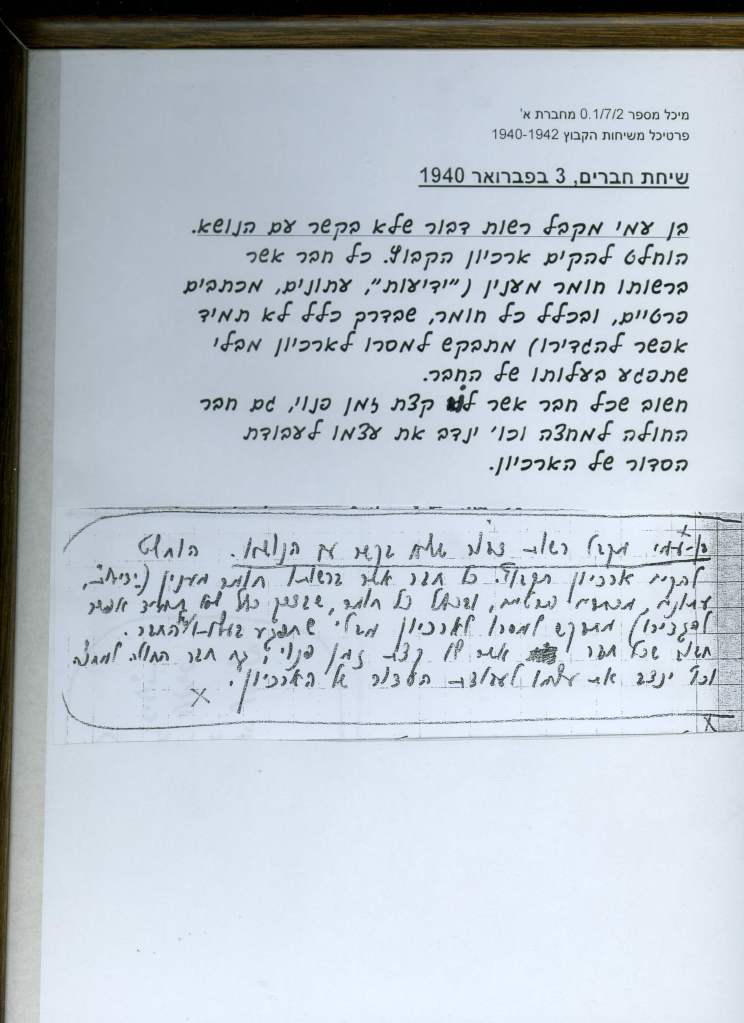 מיכל מספר 0.1/7/2 מחברת א'
פרטיכל משיחות הקבוץ 1940-1942
שיחת חברים, 3 בפברואר 1940
בן עמי מקבל רשות דבור שלא בקשר עם הנושא.
הוחלט להקים ארכיון הקבוץ. כל חבר אשר
ברשותו חומר מענין ("ידיעות", עתונים, מכתבים
פרטיים, ובכלל כל חומר, שבדרך כלל לא תמיד
אפשר להגדירו) מתבקש למסרו לארכיון מבלי
שתפגע בעלותו של החבר.
חשוב שכל חבר אשר לו קצת זמן פנוי, גם חבר
החולה למחצה וכו' ינדב את עצמו לעבודת
הסדור של הארכיון.
בן-עמי מקבל רשות דבור שלא בקשר עם הנושא. הוחלט
להקים ארכיון הקבוץ. כל חבר אשר ברשותו חומר מענין (ידיעות,
עתונים, מכתבים פרטיים, ובכלל כל חומר, שבדרך כלל לא תמיד אפשר
להגדירו) מתבקש למסרו לארכיון מבלי שתפגע בעלותו של החבר.
חשוב שכל חבר אשר לו קצת זמן פנוי, גם חבר החולה למחצה
וכו' ינדב את עצמו לעבודת הסדור של הארכיון.